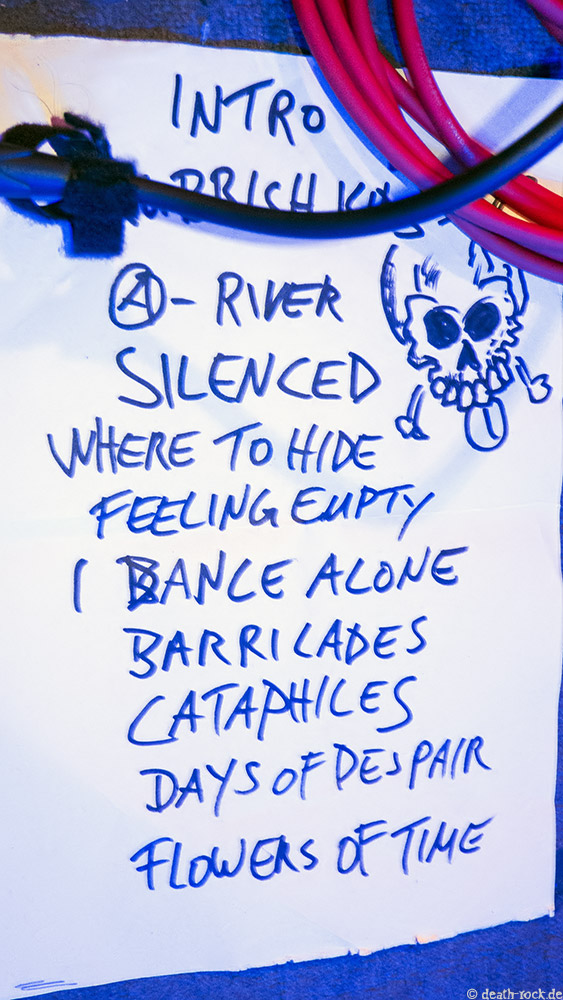 INTRO
Ⓐ - RIVER
SILENCED
WHERE TO HIDE
FEELING EMPTY
I DANCE ALONE
BARRICADES
CATAPHILES
DAYS OF DESPAIR
FLOWERS OF TIME
© death-rock.de